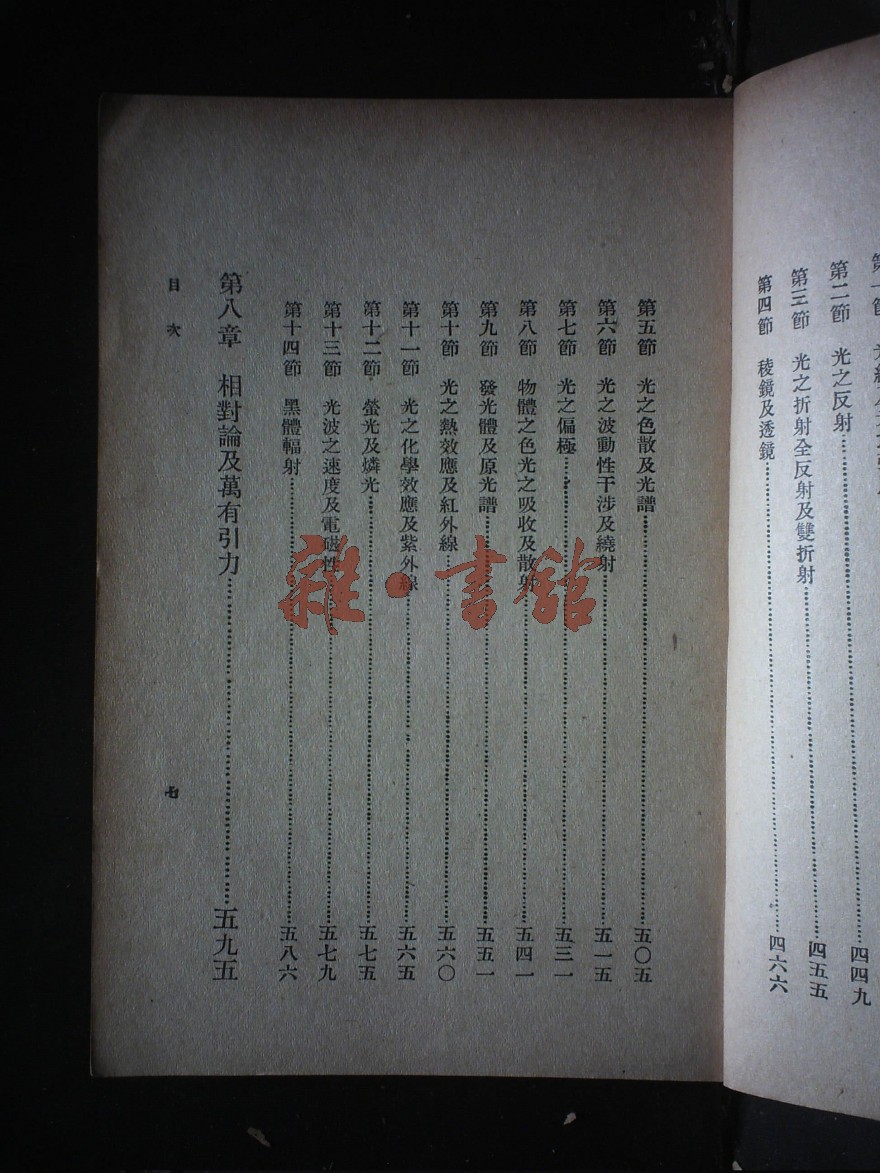 第二節　光之反射……四四九
第三節　光之折射全反射及雙折射……四五五
第四節　稜鏡及透鏡……四六六
第五節　光之色散及光譜……五〇五
第六節　光之波動性干涉及繞射……五一五
第七節　光之偏極……五三一
第八節　物體之色光之吸收及散射……五四一
第九節　發光體及原光譜……五五一
第十節　光之熱效應及紅外線……五六〇
第十一節　光之化學效應及紫外線……五六五
第十二節　螢光及燐光……五七五
第十三節　光波之速度及電磁性……五七九
第十四節　黑體輻射……五八六
第八章　相對論及萬有引力……五九五
目次　七
雜·書館